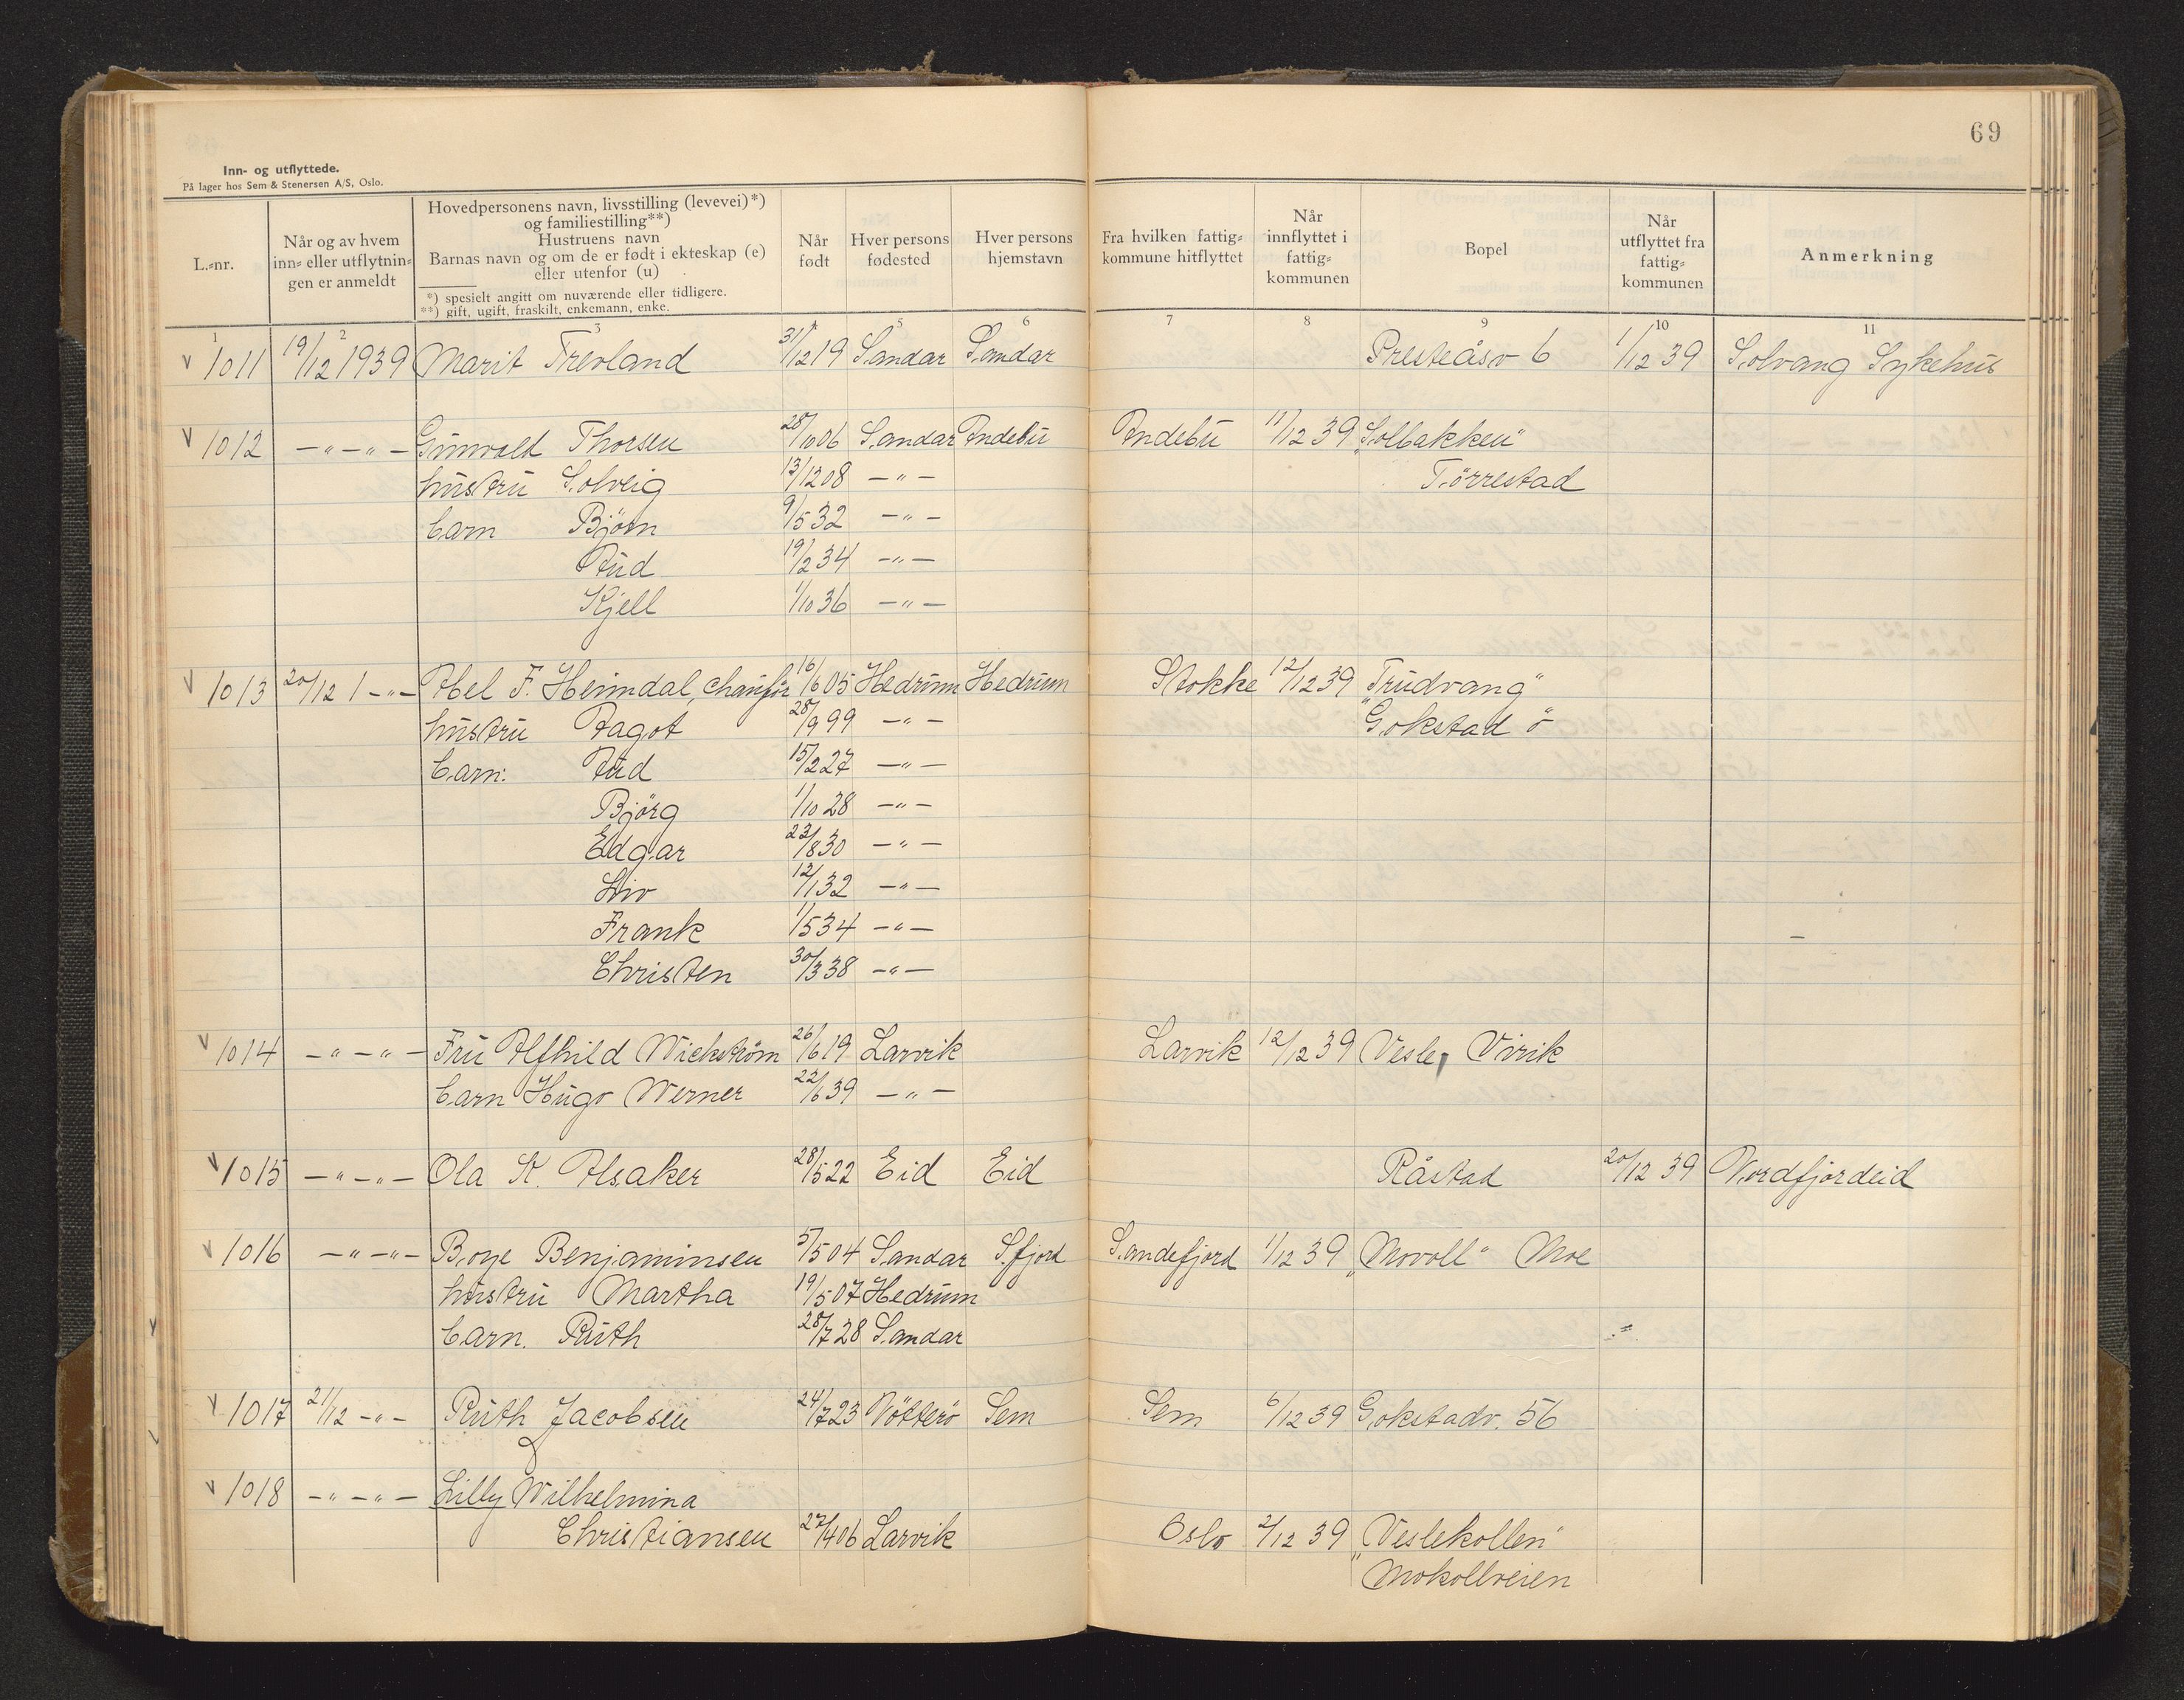 69
Inn- og utflyttede.
På lager hos Sem & Stenersen A/S, Oslo.
L.-nr.
Når og av hvem inn- eller utflytnin-gen er anmeldt
Hovedpersonens navn, livsstilling (levevei)*) og familiestilling**)
Hustruens navn
Barnas navn og om de er født i ekteskap (e) eller utenfor (u)
*) spesielt angitt om nuværende eller tidligere.
**) gift, ugift, fraskilt, enkemann, enke.
Når født
Hver persons fødested
Hver persons hjemstavn
Fra hvilken fattig-kommune hitflyttet
Når innflyttet i fattig-kommunen
Bopel
Når utflyttet fra fattig-kommunen
Anmerkning
1 2 3 4 5 6 7 8 9 10 11
v 1011 19/12 1939 Marit Trevland 31/12 19 Sandar Sandar Presteåsv 6 1/12 39 Solvang Sykehus
v 1012 -"-"- Gunvald Thorsen 28/10 06 Sandar Andebu Andebu 11/12 39 "Solbakken"
hustru Solveig 13/12 08 -"- Tørrestad
barn Bjørn 9/5 32 -"-
Aud 19/2 34 -"-
Kjell 1/10 36 -"-
v 1013 20/12 1-"- Abel F. Heimdal, chaufør 16/6 05 Hedrum Hedrum Stokke 12/12 39 "Trudvang"
hustru Aagot 28/9 99 -"- Gokstad ø
barn: Aud 15/2 27 -"-
Bjørg 1/10 28 -"-
Edgar 23/8 30 -"-
Liv 12/1 32 -"-
Frank 1/5 34 -"-
Christen 30/3 38 -"-
v 1014 -"-"- Fru Alfhild Wickstrøm 26/6 19 Larvik Larvik 12/12 39 Vesle, Virik
barn Hugo Werner 22/6 39 -"-
v 1015 -"-"- Ola K. Alsaker 28/5 22 Eid Eid Råstad 20/12 39 Nordfjordeid
v 1016 -"-"- Boye Benjaminsen 5/5 04 Sandar S.fjord Sandefjord 1/12 39 "Movoll" Moe
hustru Martha 19/5 07 Hedrum
barn. Ruth 28/7 28 Sandar
v 1017 21/12 -"- Ruth Jacobsen 24/7 23 Nøtterø Sem Sem 6/12 39 Gokstadv. 56
v 1018 -"-"- Lilly Wilhelmina
Christiansen 27/4 06 Larvik Oslo 2/12 39 "Veslekollen"
Mokollveien